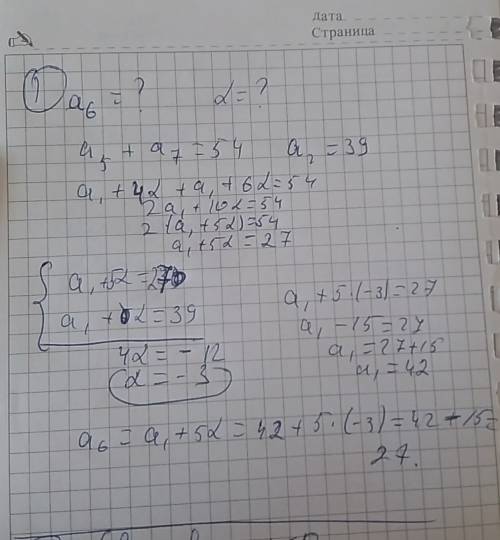 Дата
Страница
1 a6 = ? d = ?
a5 + a7 = 54 a2 = 39
a1 + 4d + a1 + 6d = 54
2a1 + 10d = 54
2(a1 + 5d) = 54
a1 + 5d = 27
a1 + 5d = 27
a1 + d = 39
4d = -12
d = -3
a1 + 5·(-3) = 27
a1 - 15 = 27
a1 = 27 + 15
a1 = 42
a6 = a1 + 5d = 42 + 5·(-3) = 42 - 15 =
27.